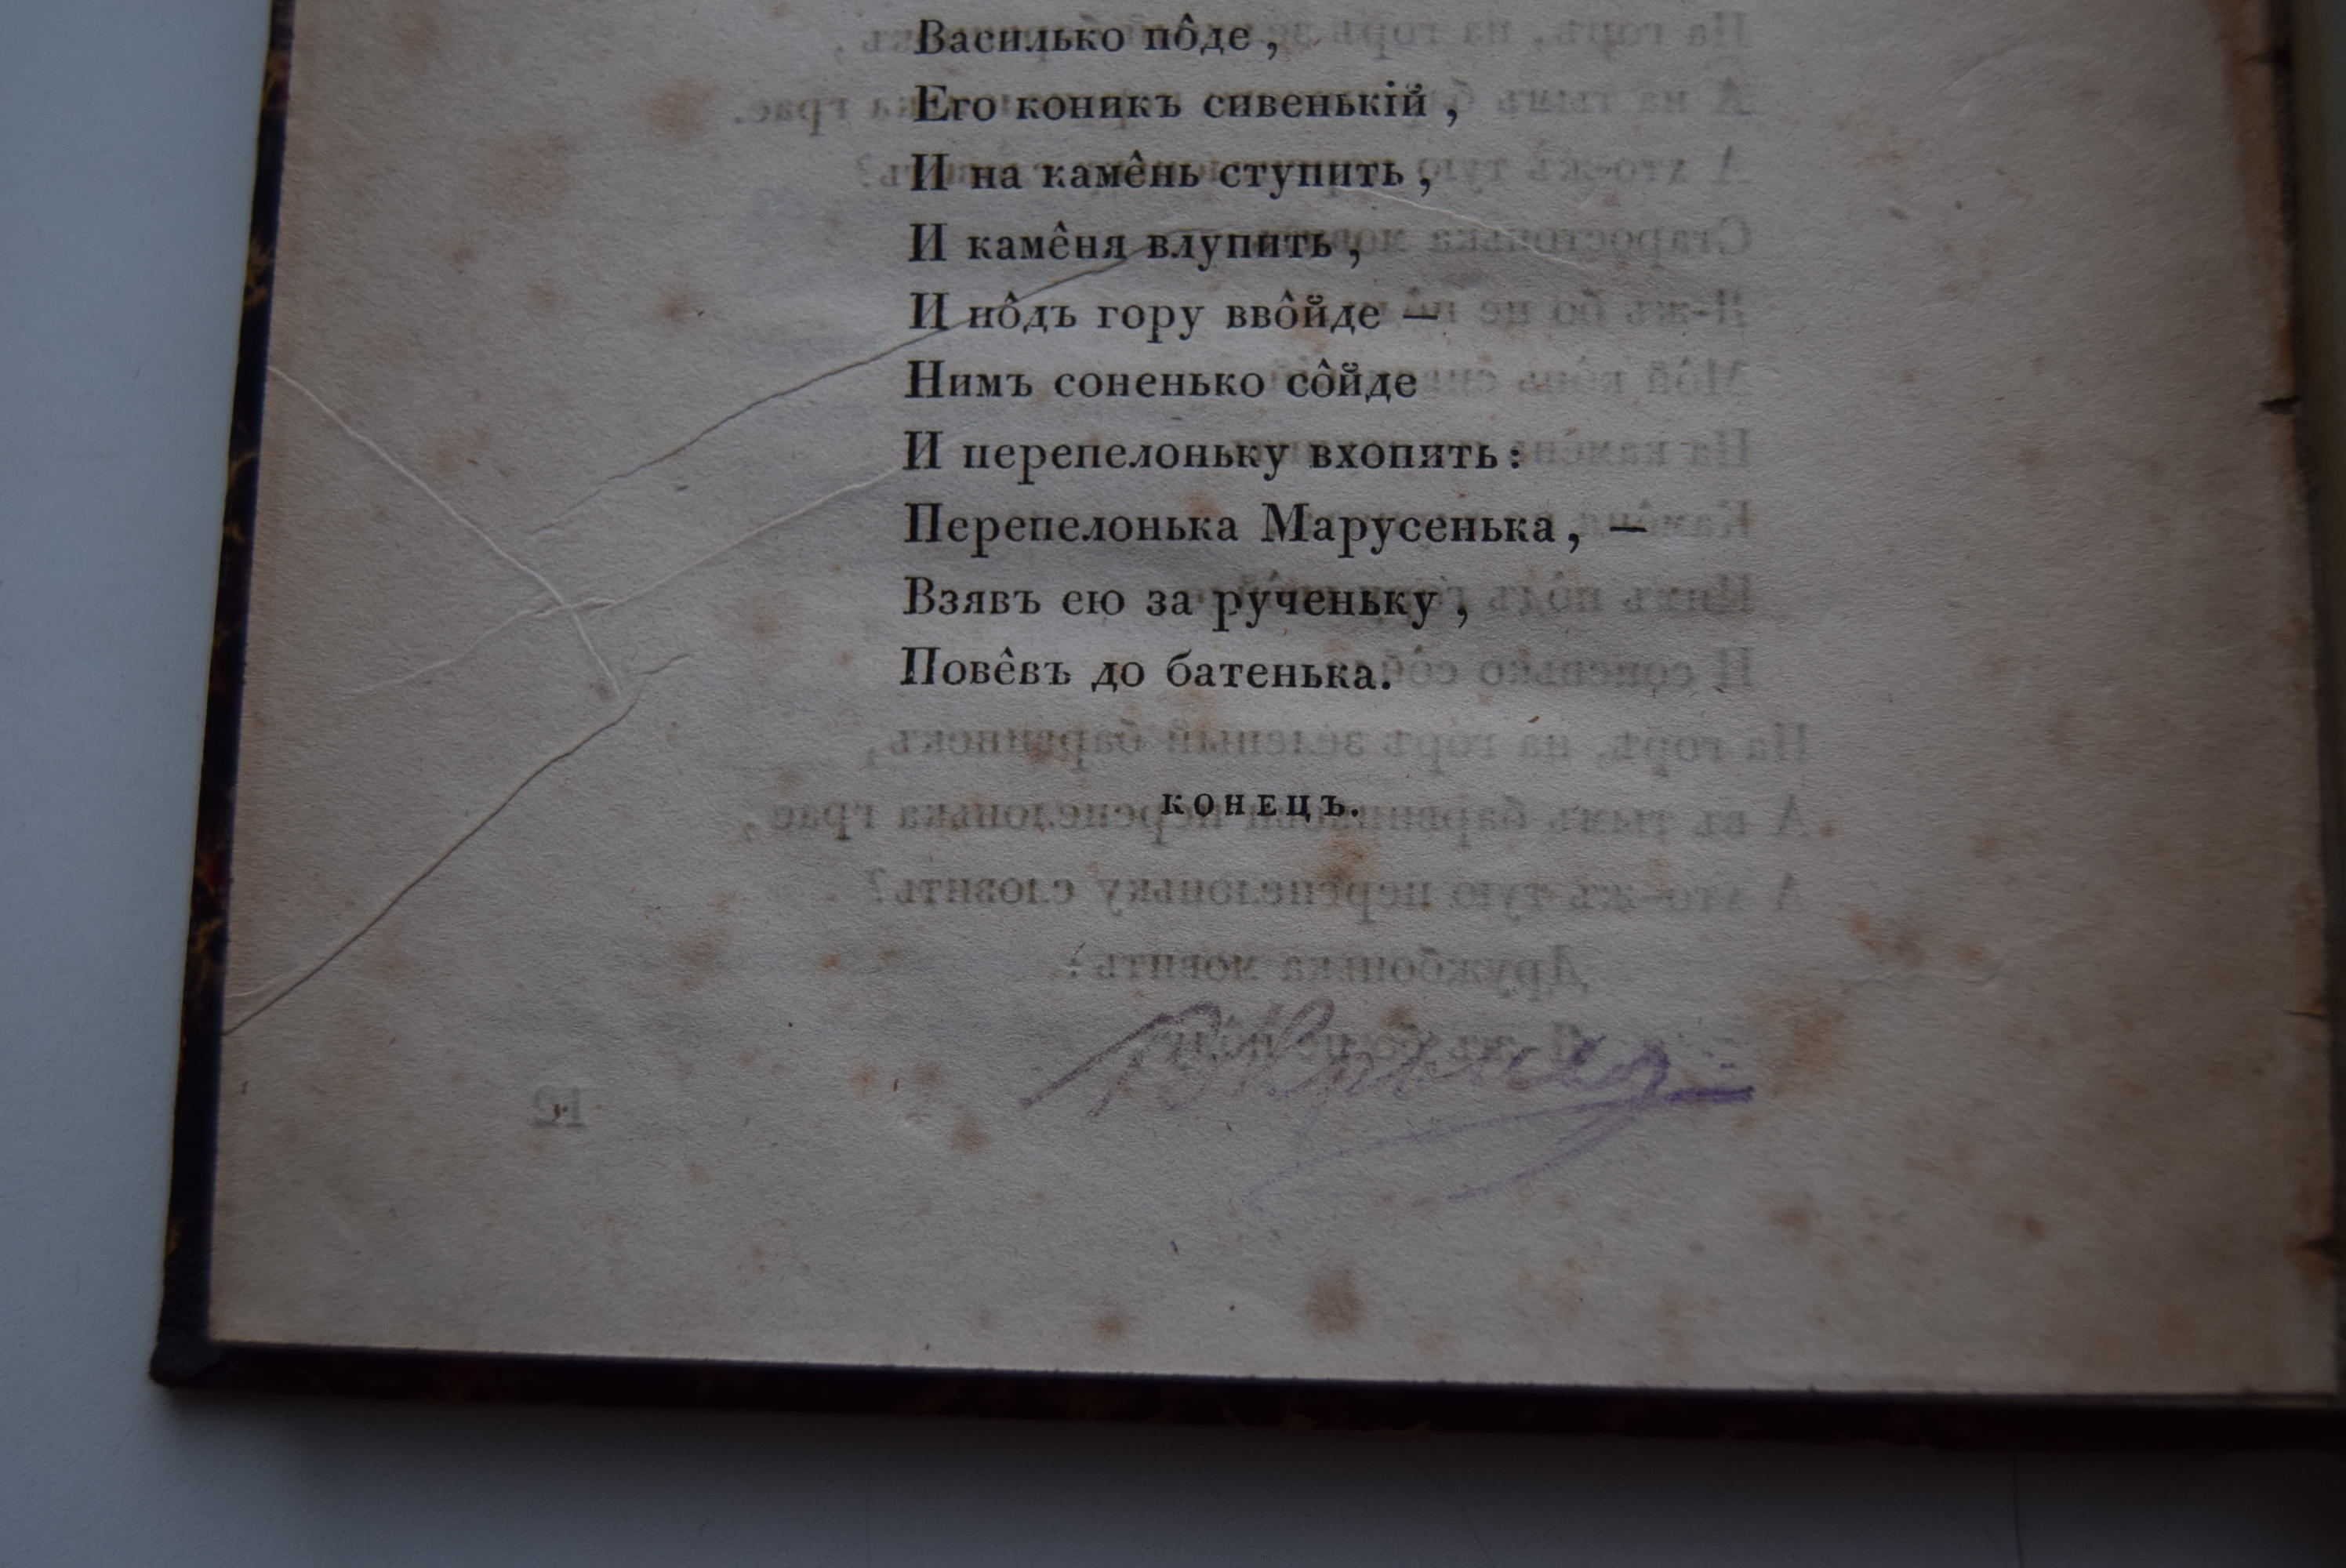 Василько по̂де,
Его коникъ сивенькій,
И на каме̂нь ступить,
И каме̂ня влупить,
И по̂дъ гору вво̂йде —
Нимъ соненько со̂йде
И перепелоньку вхопить:
Перепелонька Марусенька, —
Взявъ ею за рученьку,
Пове̂въ до батенька.
КОНЕЦЪ.